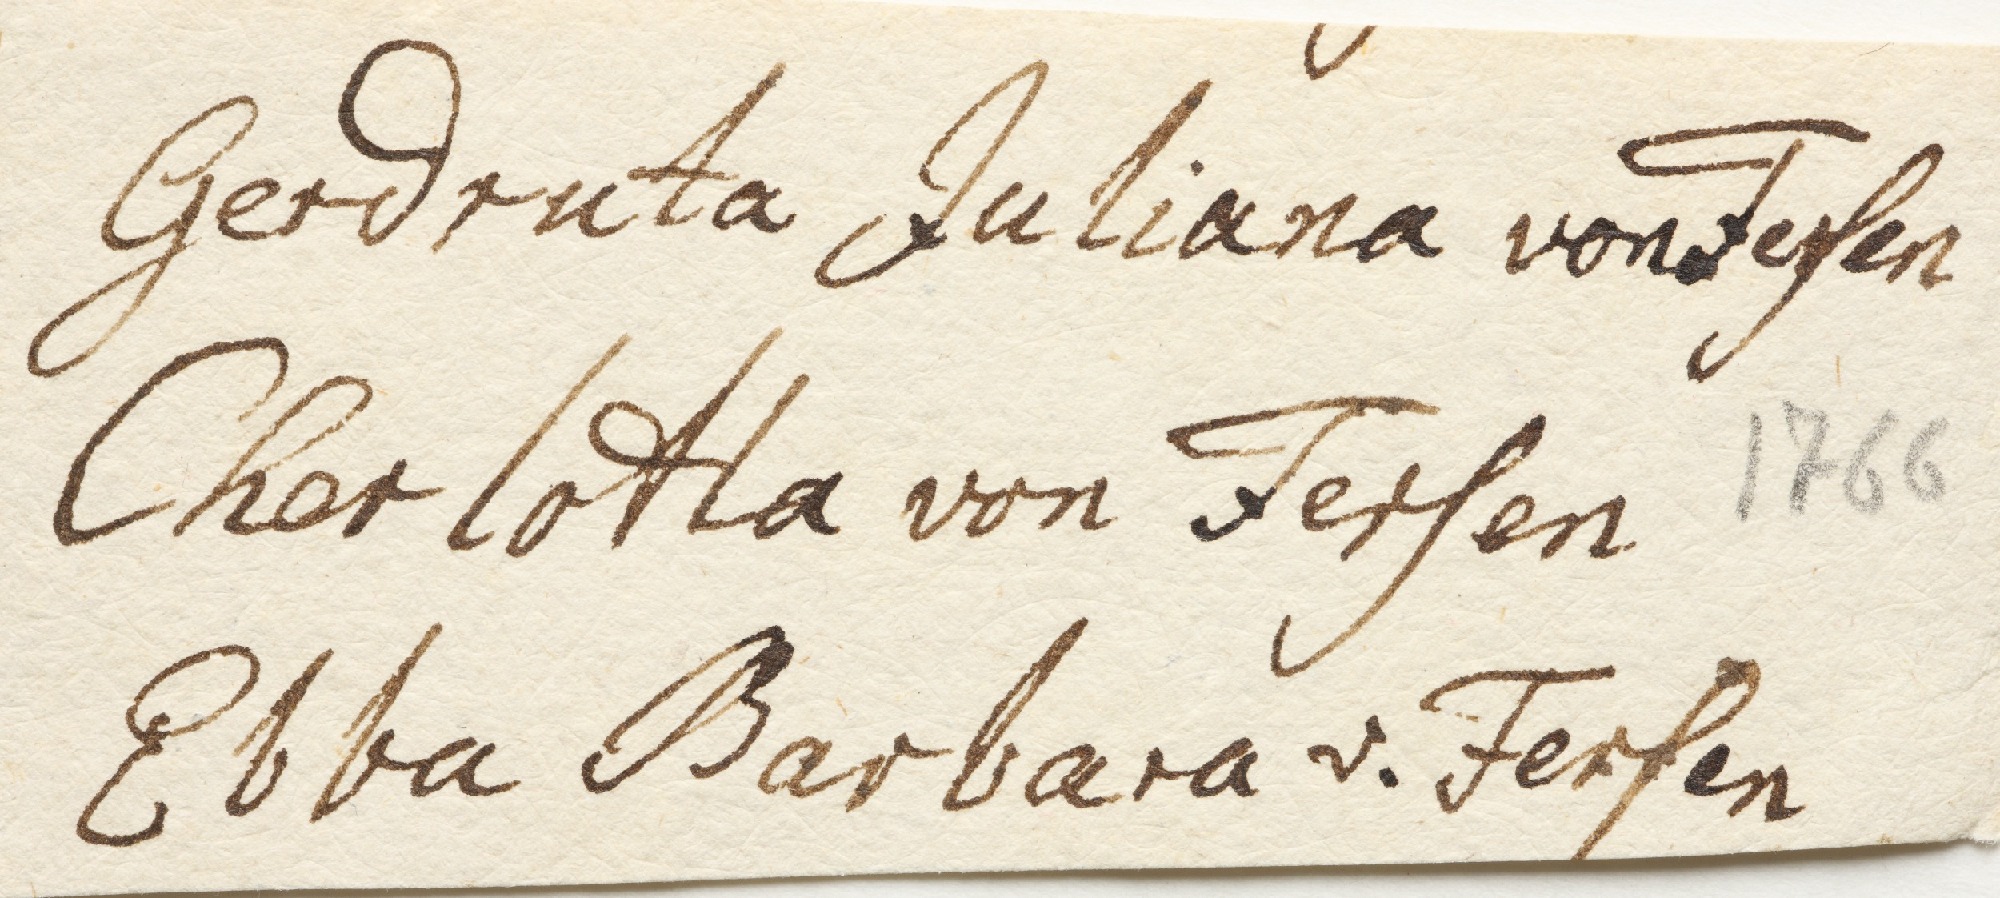 Gerdruta Juliana von Fersen
Cherlotta von Fersen
1766
Ebba Barbara v. Fersen